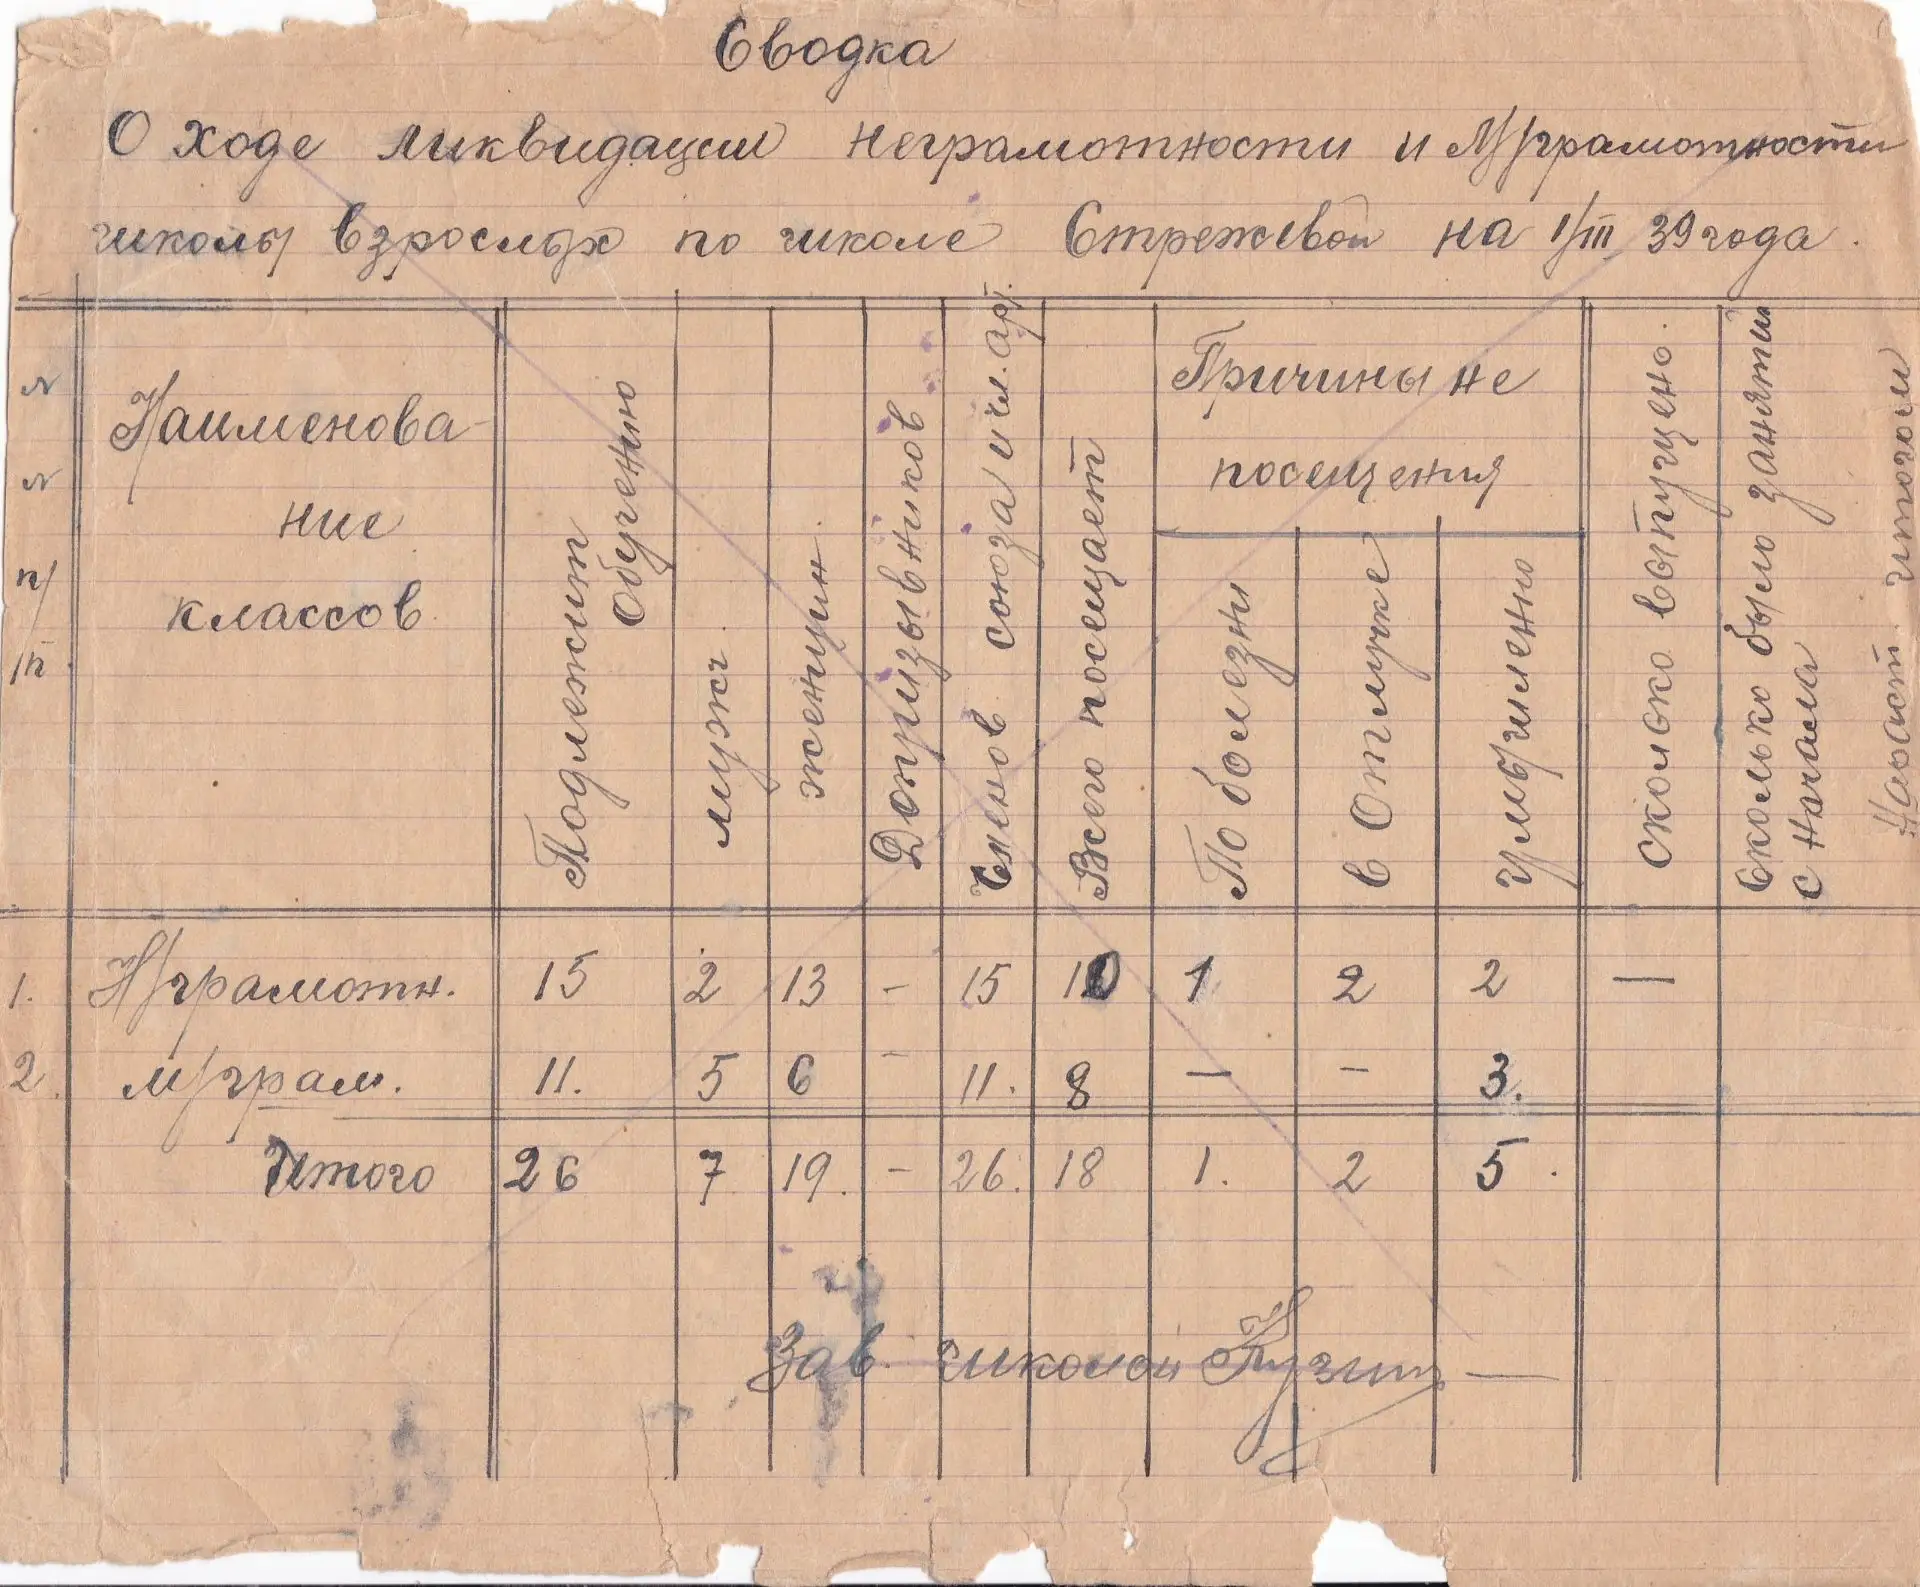 Сводка
О ходе ликвидации неграмотности и М/грамотности
школы взрослых по школе Стрежевой на 1/III 39 года.
N N п/п
Наименова-
ние
классов
Подлежит
Обучению
мужч.
женщин.
Допризывников
Членов союза и чл. арт.
Всего посещает
Причины не
посещения
По болезни
в Отлучке
Умышленно
Сколоко выпущено.
Сколько было занятий
с Начала
Нараст. итогом
1. Н/грамотн. 15 2 13 - 15 10 1. 2 2 —
2. м/грам. 11. 5 6 - 11. 8 — - 3.
Итого 26 7 19. - 26. 18 1. 2 5.
Зав. школой